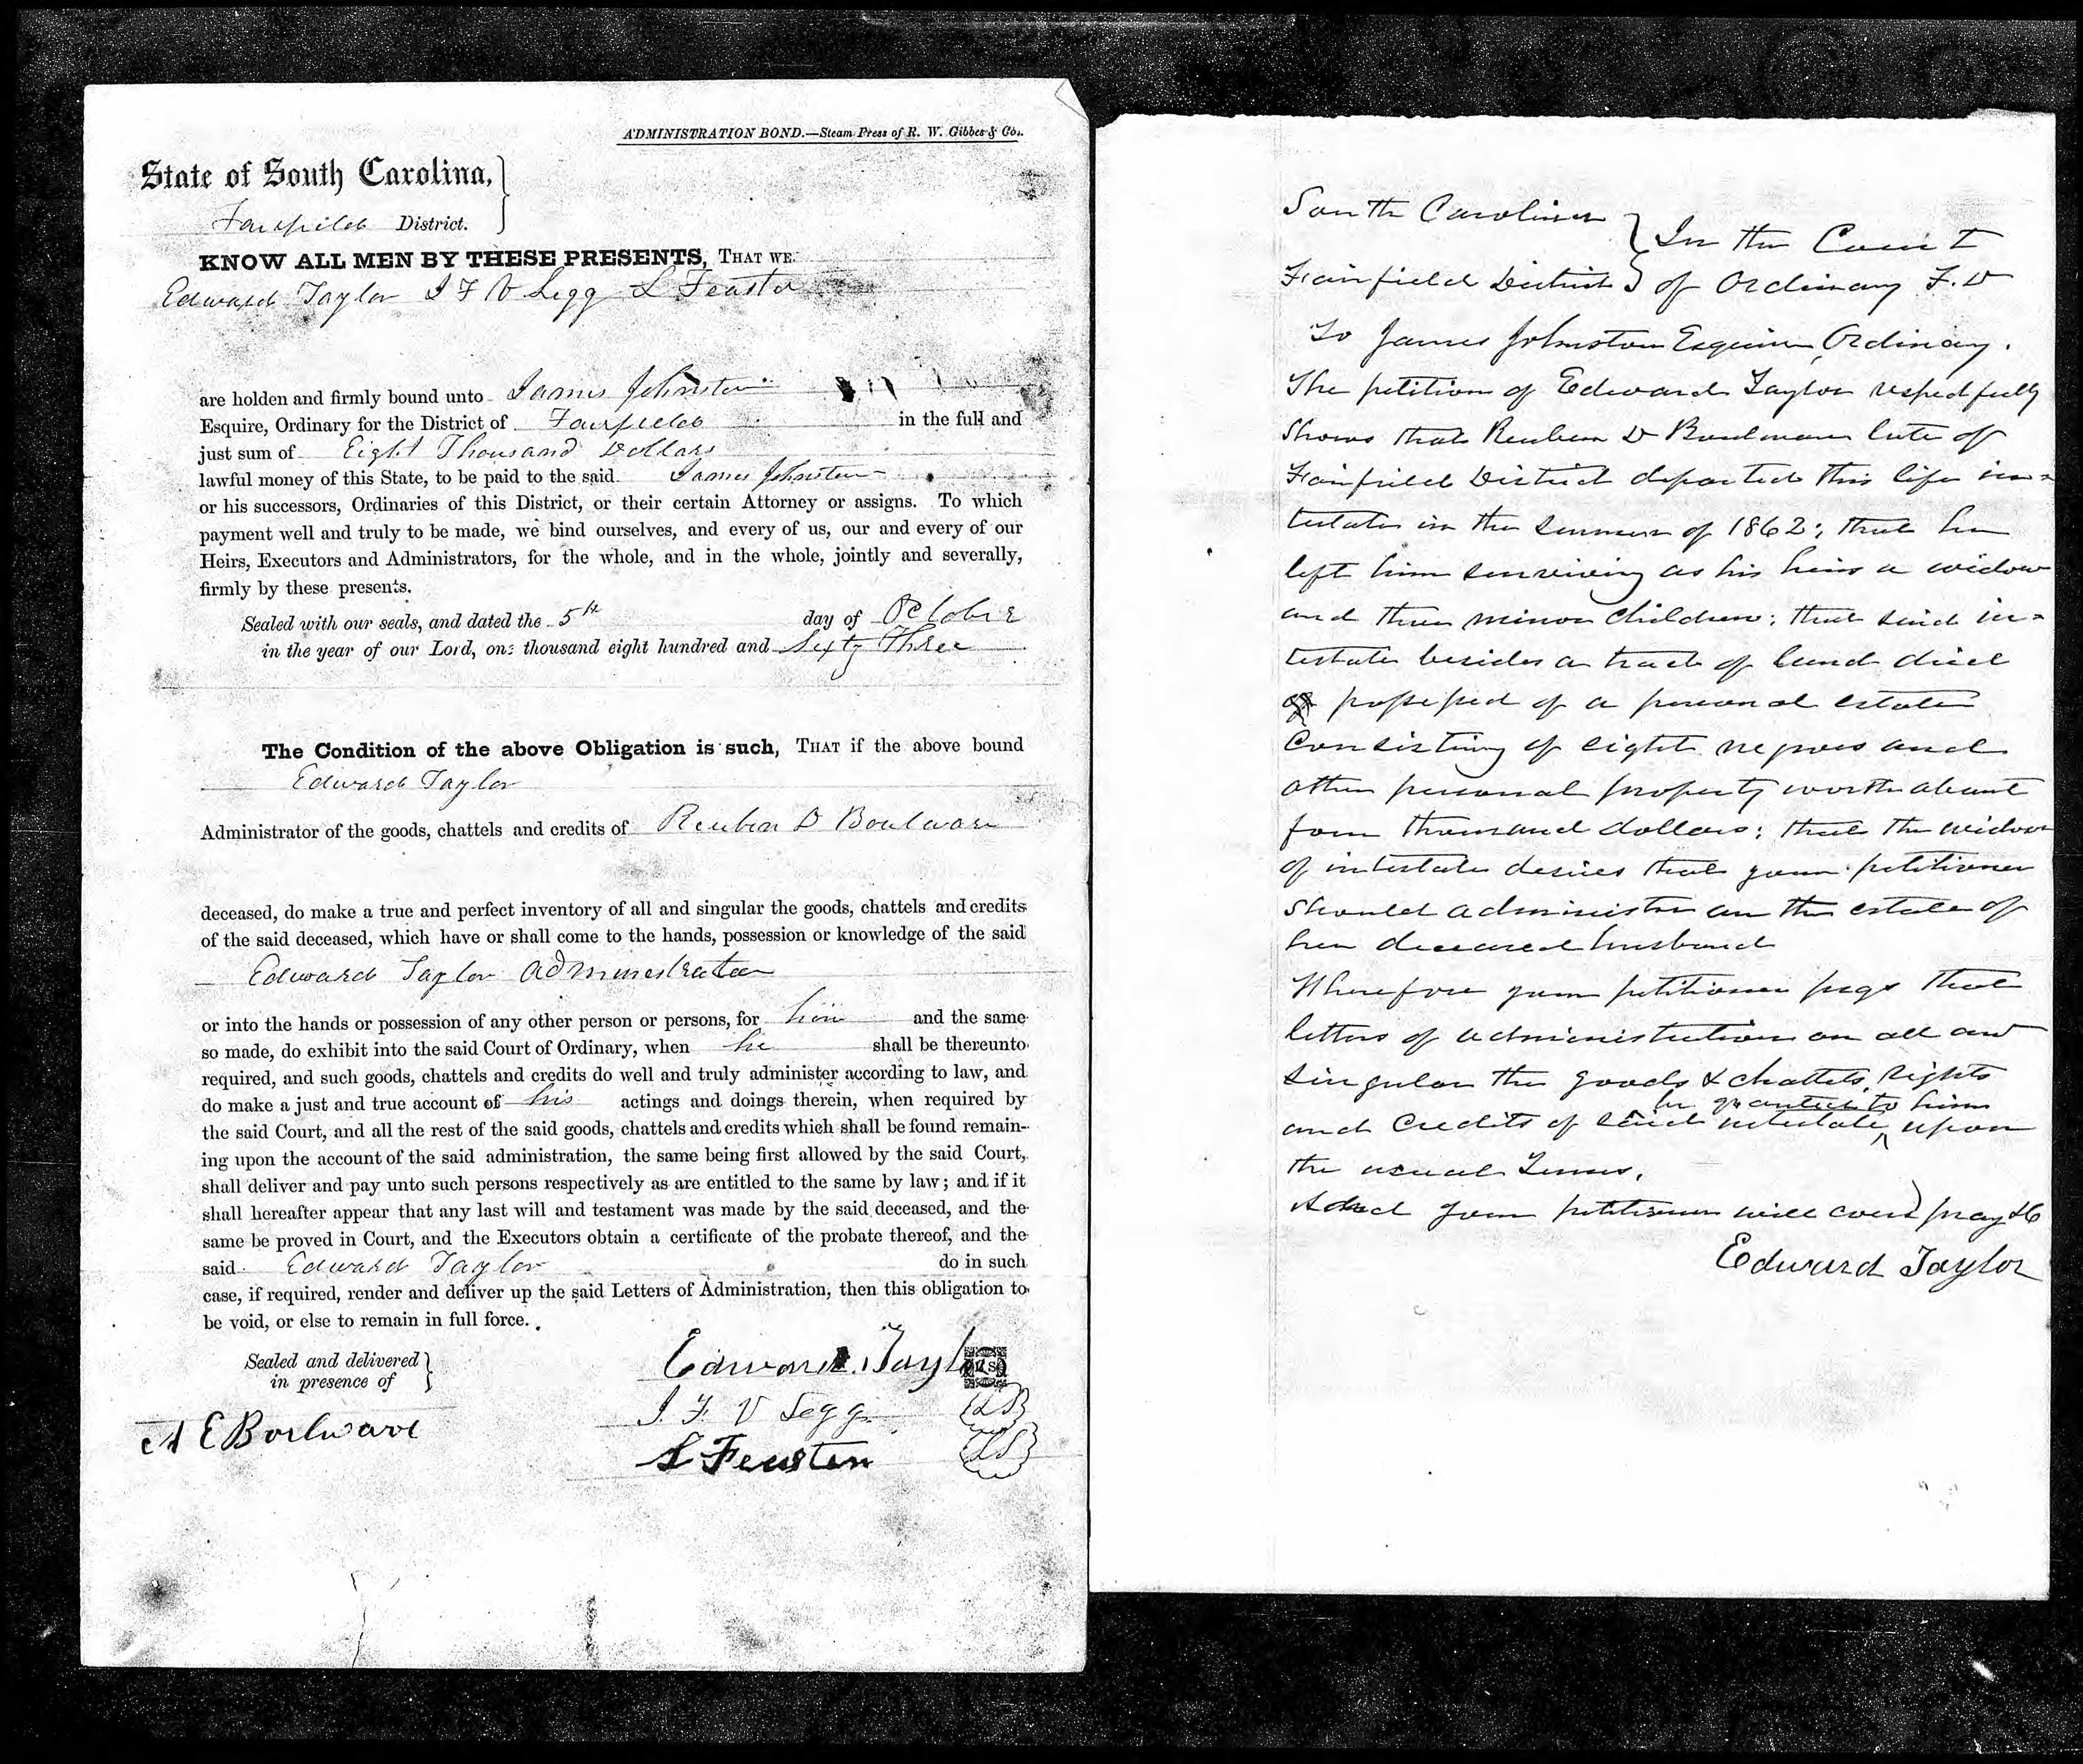 ADMINISTRATION BOND.—Steam Press of R. W. Gibbes & Co.
State of South Carolina,
Fairfield District.
KNOW ALL MEN BY THESE PRESENTS, THAT WE
Edward Taylor J F V Legg L Feaster
are holden and firmly bound unto James Johnston
Esquire, Ordinary for the District of Fairfield in the full and
just sum of Eight Thousand Dollars
lawful money of this State, to be paid to the said James Johnston
or his successors, Ordinaries of this District, or their certain Attorney or assigns. To which
payment well and truly to be made, we bind ourselves, and every of us, our and every of our
Heirs, Executors and Administrators, for the whole, and in the whole, jointly and severally,
firmly by these presents.
Sealed with our seals, and dated the 5th day of October
in the year of our Lord, one thousand eight hundred and Sixty Three
The Condition of the above Obligation is such, THAT if the above bound
Edward Taylor
Administrator of the goods, chattels and credits of Reuben D Boulware
deceased, do make a true and perfect inventory of all and singular the goods, chattels and credits
of the said deceased, which have or shall come to the hands, possession or knowledge of the said
Edward Taylor Administrator
or into the hands or possession of any other person or persons, for him and the same
so made, do exhibit into the said Court of Ordinary, when he shall be thereunto
required, and such goods, chattels and credits do well and truly administer according to law, and
do make a just and true account of his actings and doings therein, when required by
the said Court, and all the rest of the said goods, chattels and credits which shall be found remain-
ing upon the account of the said administration, the same being first allowed by the said Court,
shall deliver and pay unto such persons respectively as are entitled to the same by law; and if it
shall hereafter appear that any last will and testament was made by the said deceased, and the
same be proved in Court, and the Executors obtain a certificate of the probate thereof, and the
said Edward Taylor do in such
case, if required, render and deliver up the said Letters of Administration, then this obligation to
be void, or else to remain in full force.
Sealed and delivered
in presence of
Edward Taylor LS
J. F. V Legg LS
A E Boulware
L Feaster LS
South Carolina
In the Court
Fairfield District of Ordinary F. D
To James Johnston Esquire, Ordinary.
The petition of Edward Taylor respectfully
Shows that Reuben D Boulware late of
Fairfield District departed this life in=
testate in the Summer of 1862; that he
left him surviving as his heirs a widow
and three minor children; that said in=
testate besides a tract of land died
possessed of a personal estate
Consisting of eight negroes and
other personal property worth about
four thousand dollars; that the widow
of intestate desires that your petitioner
should administer on the estate of
her deceased husband
Wherefore your petitioner prays that
letters of administration on all and
singular the goods & chattels, rights
be granted to him
and Credits of said intestate, upon
the usual Terms,
And your petitioner will ever pray &c
Edward Taylor